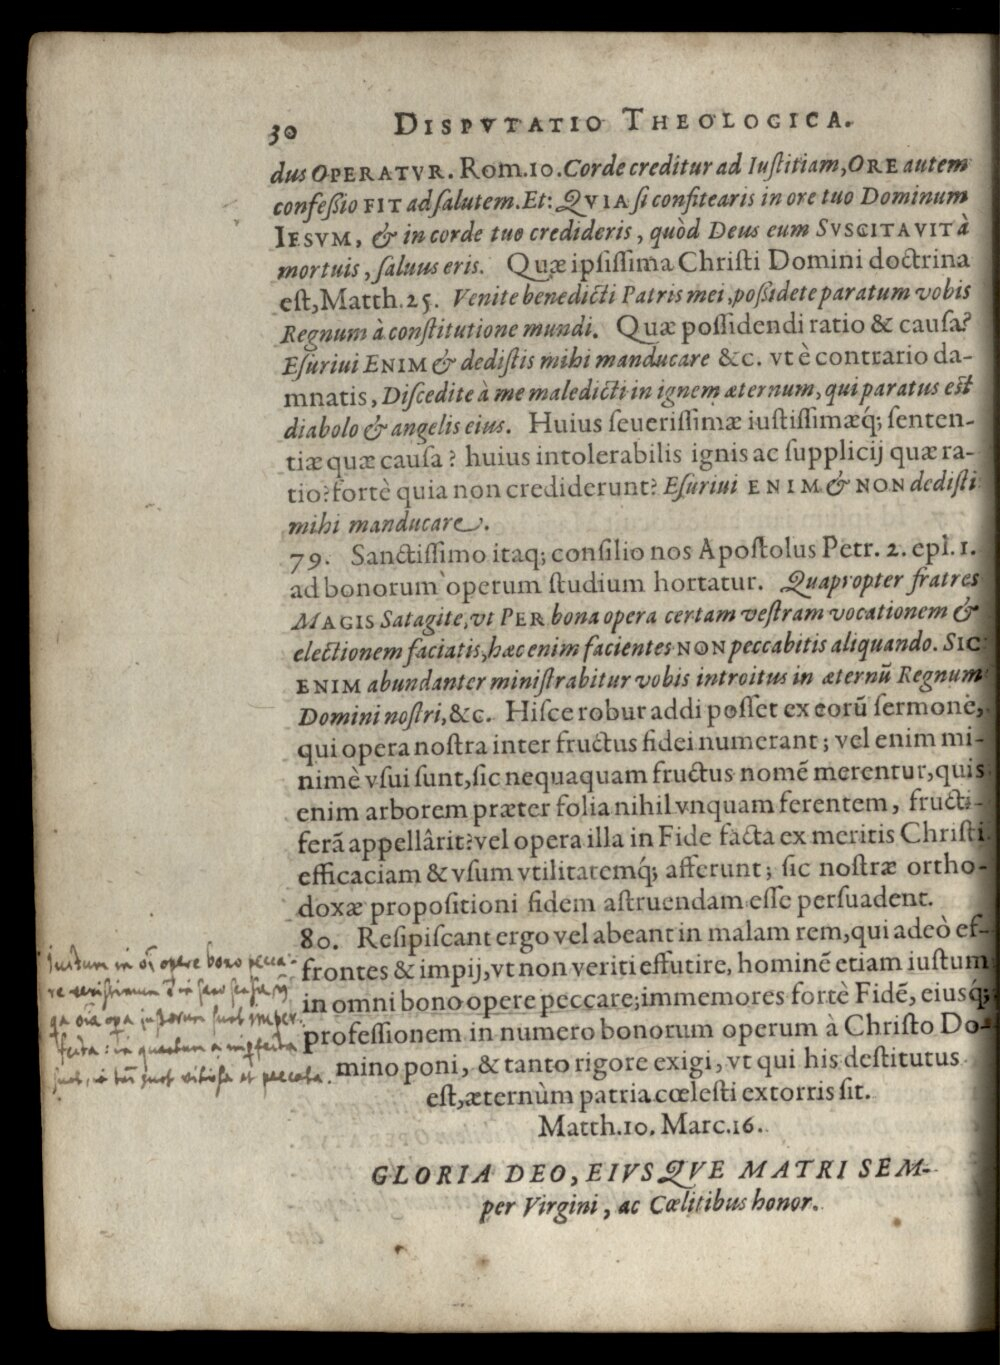 30 DISPVTATIO THEOLOGICA.
dus OPERATVR. Rom.10. Corde creditur ad Iustitiam, ORE autem
confeßio FIT ad salutem. Et: QVIA si confitearis in ore tuo Dominum
IESVM, & in corde tuo credideris, quòd Deus eum SVSCITAVIT à
mortuis, saluus eris. Quæ ipsissima Christi Domini doctrina
est, Matth. 25. Venite benedicti Patris mei, poßidete paratum vobis
Regnum à constitutione mundi. Quæ possidendi ratio & causa?
Esuriui ENIM & dedistis mihi manducare &c. vt è contrario da-
mnatis, Discedite à me maledicti in ignem æternum, qui paratus est
diabolo & angelis eius. Huius seuerissimæ iustissimæq́; senten-
tiæ quæ causa? huius intolerabilis ignis ac supplicij quæ ra-
tio? fortè quia non crediderunt? Esuriui ENIM & NON dedisti
mihi manducare.
79. Sanctissimo itaq; consilio nos Apostolus Petr. 2. epl. 1.
ad bonorum operum studium hortatur. Quapropter fratres
MAGIS Satagite, vt PER bona opera certam vestram vocationem &
electionem faciatis, hæc enim facientes NON peccabitis aliquando. SIC
ENIM abundanter ministrabitur vobis introitus in æternū Regnum
Domini nostri, &c. Hisce robur addi posset ex eorū sermone,
qui opera nostra inter fructus fidei numerant; vel enim mi-
nimè vsui sunt, sic nequaquam fructus nomē merentur, quis
enim arborem præter folia nihil vnquam ferentem, fructi-
ferā appellârit? vel opera illa in Fide facta ex meritis Christi
efficaciam & vsum vtilitatemq́; afferunt; sic nostræ ortho-
doxæ propositioni fidem astruendam esse persuadent.
80. Resipiscant ergo vel abeant in malam rem, qui adeò ef-
frontes & impij, vt non veriti effutire, hominē etiam iustum
in omni bono opere peccare; immemores fortè Fidē, eiusq́;
professionem in numero bonorum operum à Christo Do-
mino poni, & tanto rigore exigi, vt qui his destitutus
est, æternùm patria cœlesti extorris sit.
Matth. 10. Marc. 16.
GLORIA DEO, EIVSQVE MATRI SEM-
per Virgini, ac Cœlitibus honor.
Iustum in oī opere bono pecca-
re verissimum
qa oīa opa justorum sunt imper-
fecta: in quantum imperfecta
sunt, tm̄ sunt vitiosa et peccata.